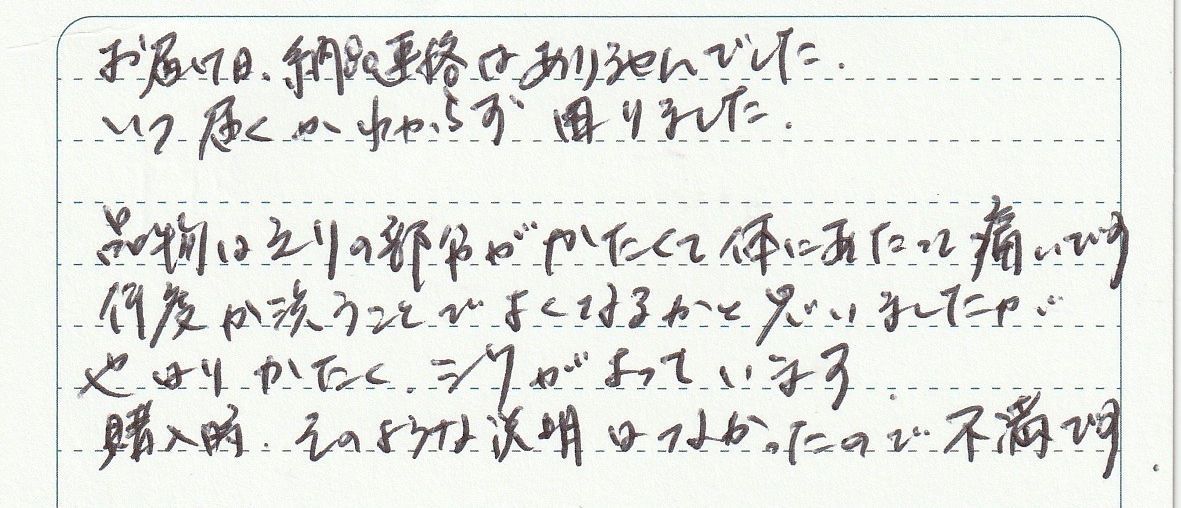 お届け日、納品連絡はありませんでした.
いつ届くかわからず困りました.
品物はえりの部分がかたくて体にあたって痛いです
何度か洗うことでよくなるかと思いましたが
やはりかたく、シワがよっています.
購入時、そのような説明はなかったので不満です.